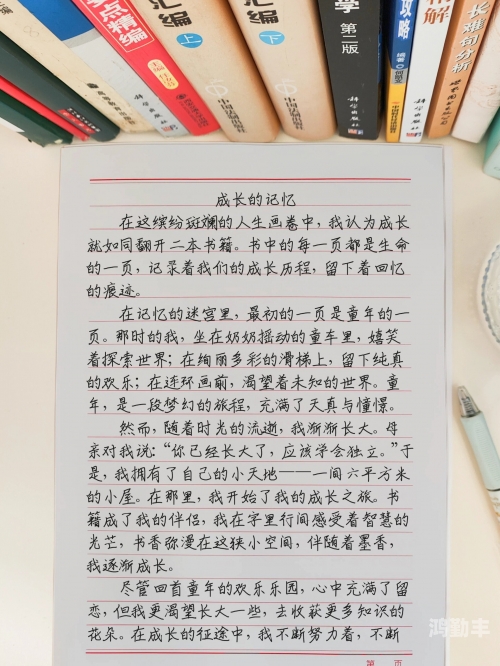 点精编
主编
科学出版社
汇编
上
中国法制出版社
汇编
下
中国法制出版社
学
第二版
科学出版社
攻略
编著
中国法制出版社
精解
长难句分析
世界图书出版公司
成长的记忆
在这缤纷斑斓的人生画卷中，我认为成长
就如同翻开二本书籍。书中的每一页都是生命
的一页，记录着我们的成长历程，留下着回忆
的痕迹。
在记忆的迷宫里，最初的一页是童年的一
页。那时的我，坐在奶奶摇动的童车里，嬉笑
着探索世界；在绚丽多彩的滑梯上，留下纯真
的欢乐；在连环画前，渴望着未知的世界。童
年，是一段梦幻的旅程，充满了天真与憧憬。
然而，随着时光的流逝，我渐渐长大。母
亲对我说：“你已经长大了，应该学会独立。”于
是，我拥有了自己的小天地——一间六平方米
的小屋。在那里，我开始了我的成长之旅。书
籍成了我的伴侣，我在字里行间感受着智慧的
光芒，书香弥漫在这狭小空间，伴随着墨香，
我逐渐成长。
尽管回首童年的欢乐乐园，心中充满了留
恋，但我更渴望长大一些，去收获更多知识的
花朵。在成长的征途中，我不断努力着，不断
第 页
鸿勤丰